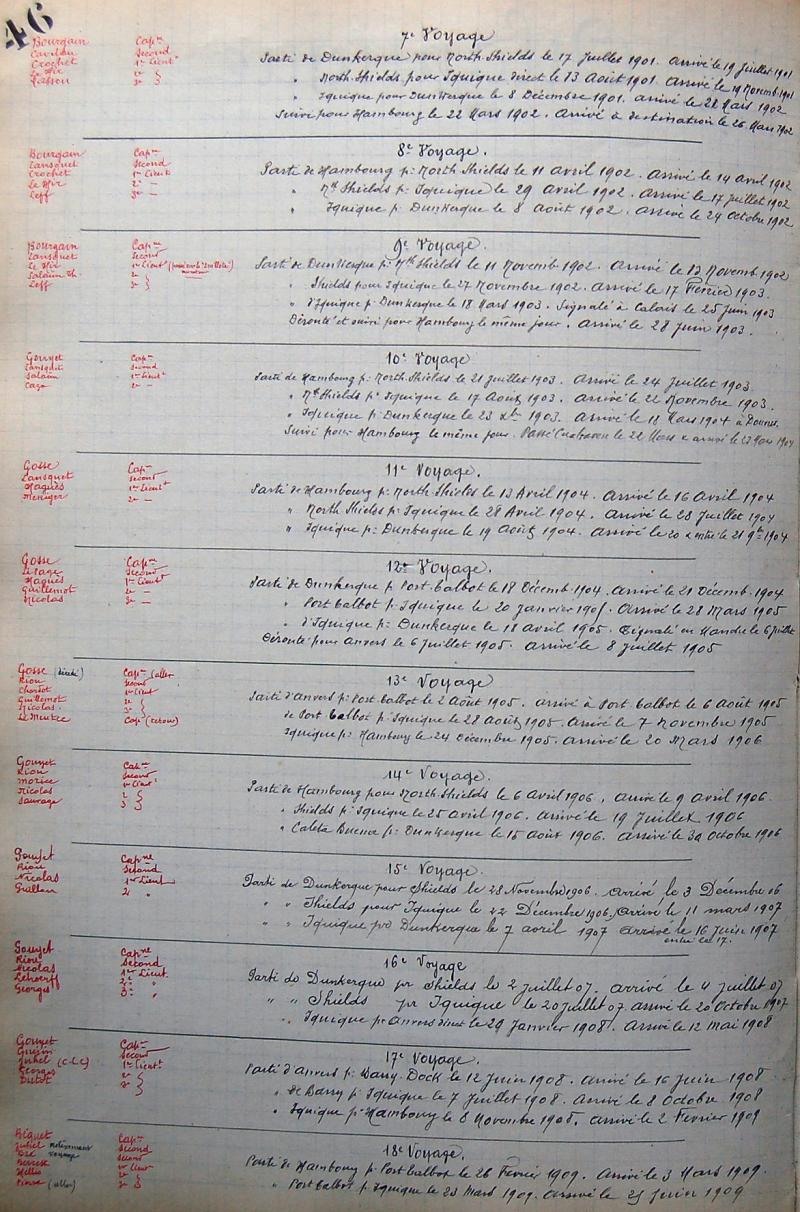 46
7e Voyage
Bourgain Capne
Cavelan Second
Crochet 1er Lieutt
Le Hir 2e
3e
Parti de Dunkerque pour North Shields le 17 Juillet 1901. Arrivé le 19 Juillet 1901
" North Shields pour Iquique direct le 13 Août 1901. Arrivé le 19 Novemb. 1901
" Iquique pour Dunkerque le 8 Décembre 1901. arrivé le 22 Mars 1902
Suivi pour Hambourg le 22 Mars 1902. Arrivé à destination le 26 Mars 1902
8e Voyage.
Bourgain Capne
Lansquet Second
Crochet 1er Lieutt
Le Hir 2e —
Leff 3e —
Parti de Hambourg p: North Shields le 11 avril 1902. Arrivé le 14 avril 1902
" Nth Shields p: Iquique le 29 avril 1902. Arrivé le 17 Juillet 1902
" Iquique p: Dunkerque le 8 Août 1902. Arrivé le 24 Octobre 1902
9e Voyage.
Bourgain Capne
Lansquet Second
Le Hir 1er Lieutt
Salaün Th. 2e
Leff 3e
Parti de Dunkerque p: Nth Shields le 11 Novemb. 1902. Arrivé le 13 Novemb. 1902
" Shields pour Iquique le 27 Novembre 1902. Arrivé le 17 Février 1903.
" d'Iquique p: Dunkerque le 18 Mars 1903. Signalé à Calais le 25 Juin 1903
Dérouté et suivi pour Hambourg le même jour. Arrivé le 28 Juin 1903.
10e Voyage
Gouyet Capne
Lansquet Second
Salaün 1er Lieutt
2e —
Parti de Hambourg p: North Shields le 21 Juillet 1903. Arrivé le 24 Juillet 1903.
" Nth Shields pr Iquique le 17 Août 1903. Arrivé le 22 Novembre 1903.
" Iquique p: Dunkerque le 23 Xbre 1903. Arrivé le 18 Mars 1904 à
Suivi pour Hambourg le même jour. Passé Cuxhaven le 22 Mars & arrivé le 23 Mars 1904
11e Voyage.
Gosse Capne
Lansquet Second
Haguès 1er Lieutt
Meniger 2e —
Parti de Hambourg p: North Shields le 13 Avril 1904. Arrivé le 16 Avril 1904
" North Shields p: Iquique le 28 Avril 1904. Arrivé le 28 Juillet 1904
" Iquique p: Dunkerque le 19 Août 1904. Arrivé le 20 & entré le 21 9bre 1904
12e Voyage.
Gosse Capne
Lepage Second
Haguès 1er Lieutt
Guillemot 2e —
Nicolas 3e —
Parti de Dunkerque p: Port Talbot le 18 Décemb. 1904. Arrivé le 21 Décemb. 1904
" Port Talbot p: Iquique le 20 Janvier 1905. Arrivé le 28 Mars 1905
" d'Iquique p: Dunkerque le 18 Avril 1905. Signalé en Manche le 6 Juillet
Dérouté pour Anvers le 6 Juillet 1905. Arrivé le 8 Juillet 1905
13e Voyage
Gosse Capne (aller
Riou Second
1er Lieutt
Guillemot 2e
Nicolas. 3e
Cape (retour)
Parti d'Anvers p: Port Talbot le 2 Août 1905. arrivé à Port Talbot le 6 Août 1905
de Port Talbot p: Iquique le 23 Août 1905. Arrivé le 7 Novembre 1905
Iquique p: Hambourg le 24 Décembre 1905. Arrivé le 20 Mars 1906
14e Voyage.
Gouyet Capne
Riou Second
Morice 1er Lieutt
Nicolas 2
Sauvage 3
Parti de Hambourg pour North Shields le 6 Avril 1906, arrivé le 9 avril 1906.
" Shields p: Iquique le 25 avril 1906. arrivé le 19 Juillet 1906
" Caleta Buena p: Dunkerque le 15 août 1906. arrivé le 30 Octobre 1906
15e Voyage.
Gouyet Capne
Riou Second
Nicolas 1er Lieut
2e "
Parti de Dunkerque pour Shields le 28 Novembre 1906. arrivé le 3 Décembre 06
" " Shields pour Iquique le 22 Décembre 1906. Arrivé le 11 mars 1907
" " Iquique pr Dunkerque le 7 avril 1907 arrivé le 16 Juin 1907
entré le 17.
16e Voyage
Gouyet Capne
Riou Second
Nicolas 1er Lieut.
Lehoerff 2e "
Georges 3e "
Parti de Dunkerque pr Shields le 2 juillet 07. arrivé le 4 juillet 07
" " Shields pr Iquique le 20 juillet 07. arrivé le 20 Octobre 1907
" Iquique pr Anvers direct le 29 Janvier 1908. Arrivé le 12 mai 1908
17e Voyage.
Gouyet Capne
Second
Juhel (C-L-C) 1er Lieutt
Georges 2e
3e
Parti d'Anvers p: Barry-Dock le 12 Juin 1908. arrivé le 16 Juin 1908
" de Barry p: Iquique le 7 Juillet 1908. Arrivé le 8 Octobre 1908
" Iquique p: Hambourg le 8 Novembre 1908. Arrivé le 2 Février 1909
18e Voyage.
Biguet Capne
Juhel Second
Second
1er Lieut
2e
(aller) 3e
Parti de Hambourg p: Port Talbot le 26 Février 1909. Arrivé le 3 Mars 1909.
" Port Talbot p: Iquique le 23 Mars 1909. Arrivé le 25 Juin 1909